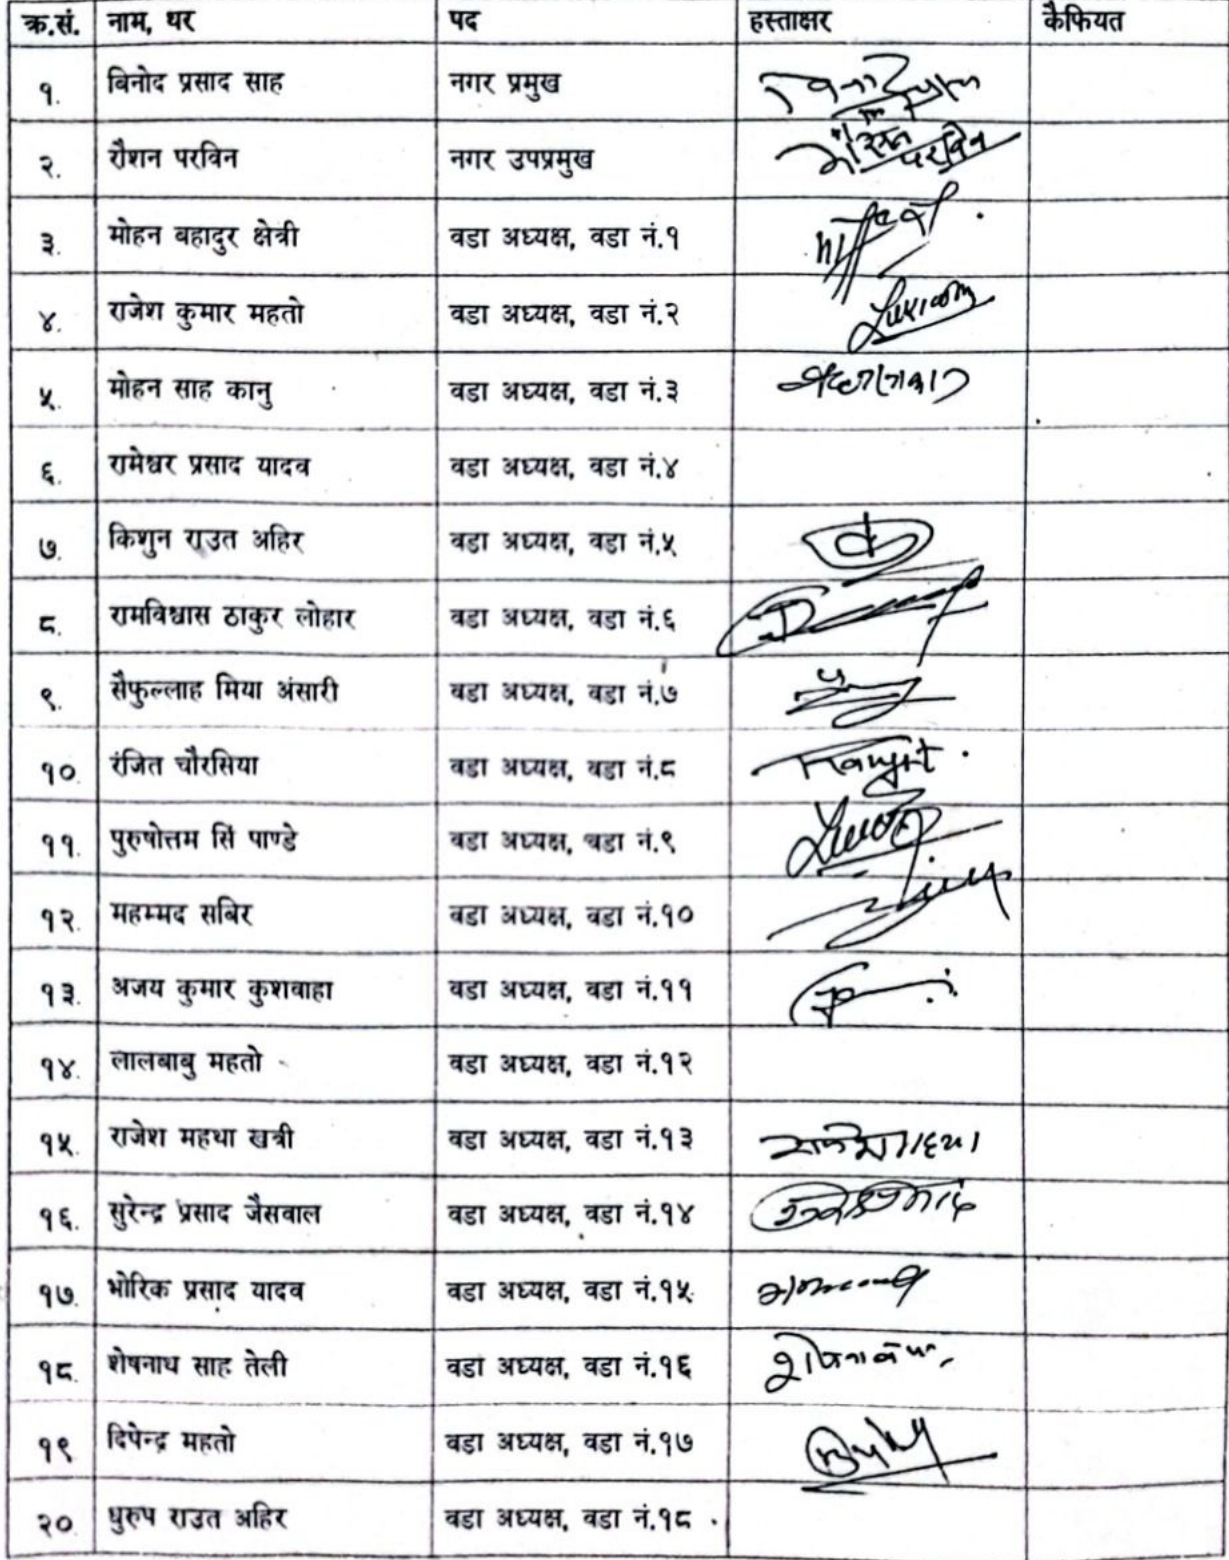 क्र.सं. नाम, थर पद हस्ताक्षर कैफियत
१. बिनोद प्रसाद साह नगर प्रमुख
२. रौशन परविन नगर उपप्रमुख परविन
३. मोहन बहादुर क्षेत्री वडा अध्यक्ष, वडा नं.१
४. राजेश कुमार महतो वडा अध्यक्ष, वडा नं.२
५. मोहन साह कानु वडा अध्यक्ष, वडा नं.३
६. रामेश्वर प्रसाद यादव वडा अध्यक्ष, वडा नं.४
७. किशुन राउत अहिर वडा अध्यक्ष, वडा नं.५
८. रामविश्वास ठाकुर लोहार वडा अध्यक्ष, वडा नं.६
९. सैफुल्लाह मिया अंसारी वडा अध्यक्ष, वडा नं.७
१०. रंजित चौरसिया वडा अध्यक्ष, वडा नं.८ Ranjit
११. पुरुषोत्तम सिं पाण्डे वडा अध्यक्ष, वडा नं.९
१२. महम्मद सबिर वडा अध्यक्ष, वडा नं.१०
१३. अजय कुमार कुशवाहा वडा अध्यक्ष, वडा नं.११
१४. लालबाबु महतो वडा अध्यक्ष, वडा नं.१२
१५. राजेश महथा खत्री वडा अध्यक्ष, वडा नं.१३
१६. सुरेन्द्र प्रसाद जैसवाल वडा अध्यक्ष, वडा नं.१४
१७. भोरिक प्रसाद यादव वडा अध्यक्ष, वडा नं.१५
१८. शेषनाथ साह तेली वडा अध्यक्ष, वडा नं.१६
१९. दिपेन्द्र महतो वडा अध्यक्ष, वडा नं.१७
२०. धुरुप राउत अहिर वडा अध्यक्ष, वडा नं.१८